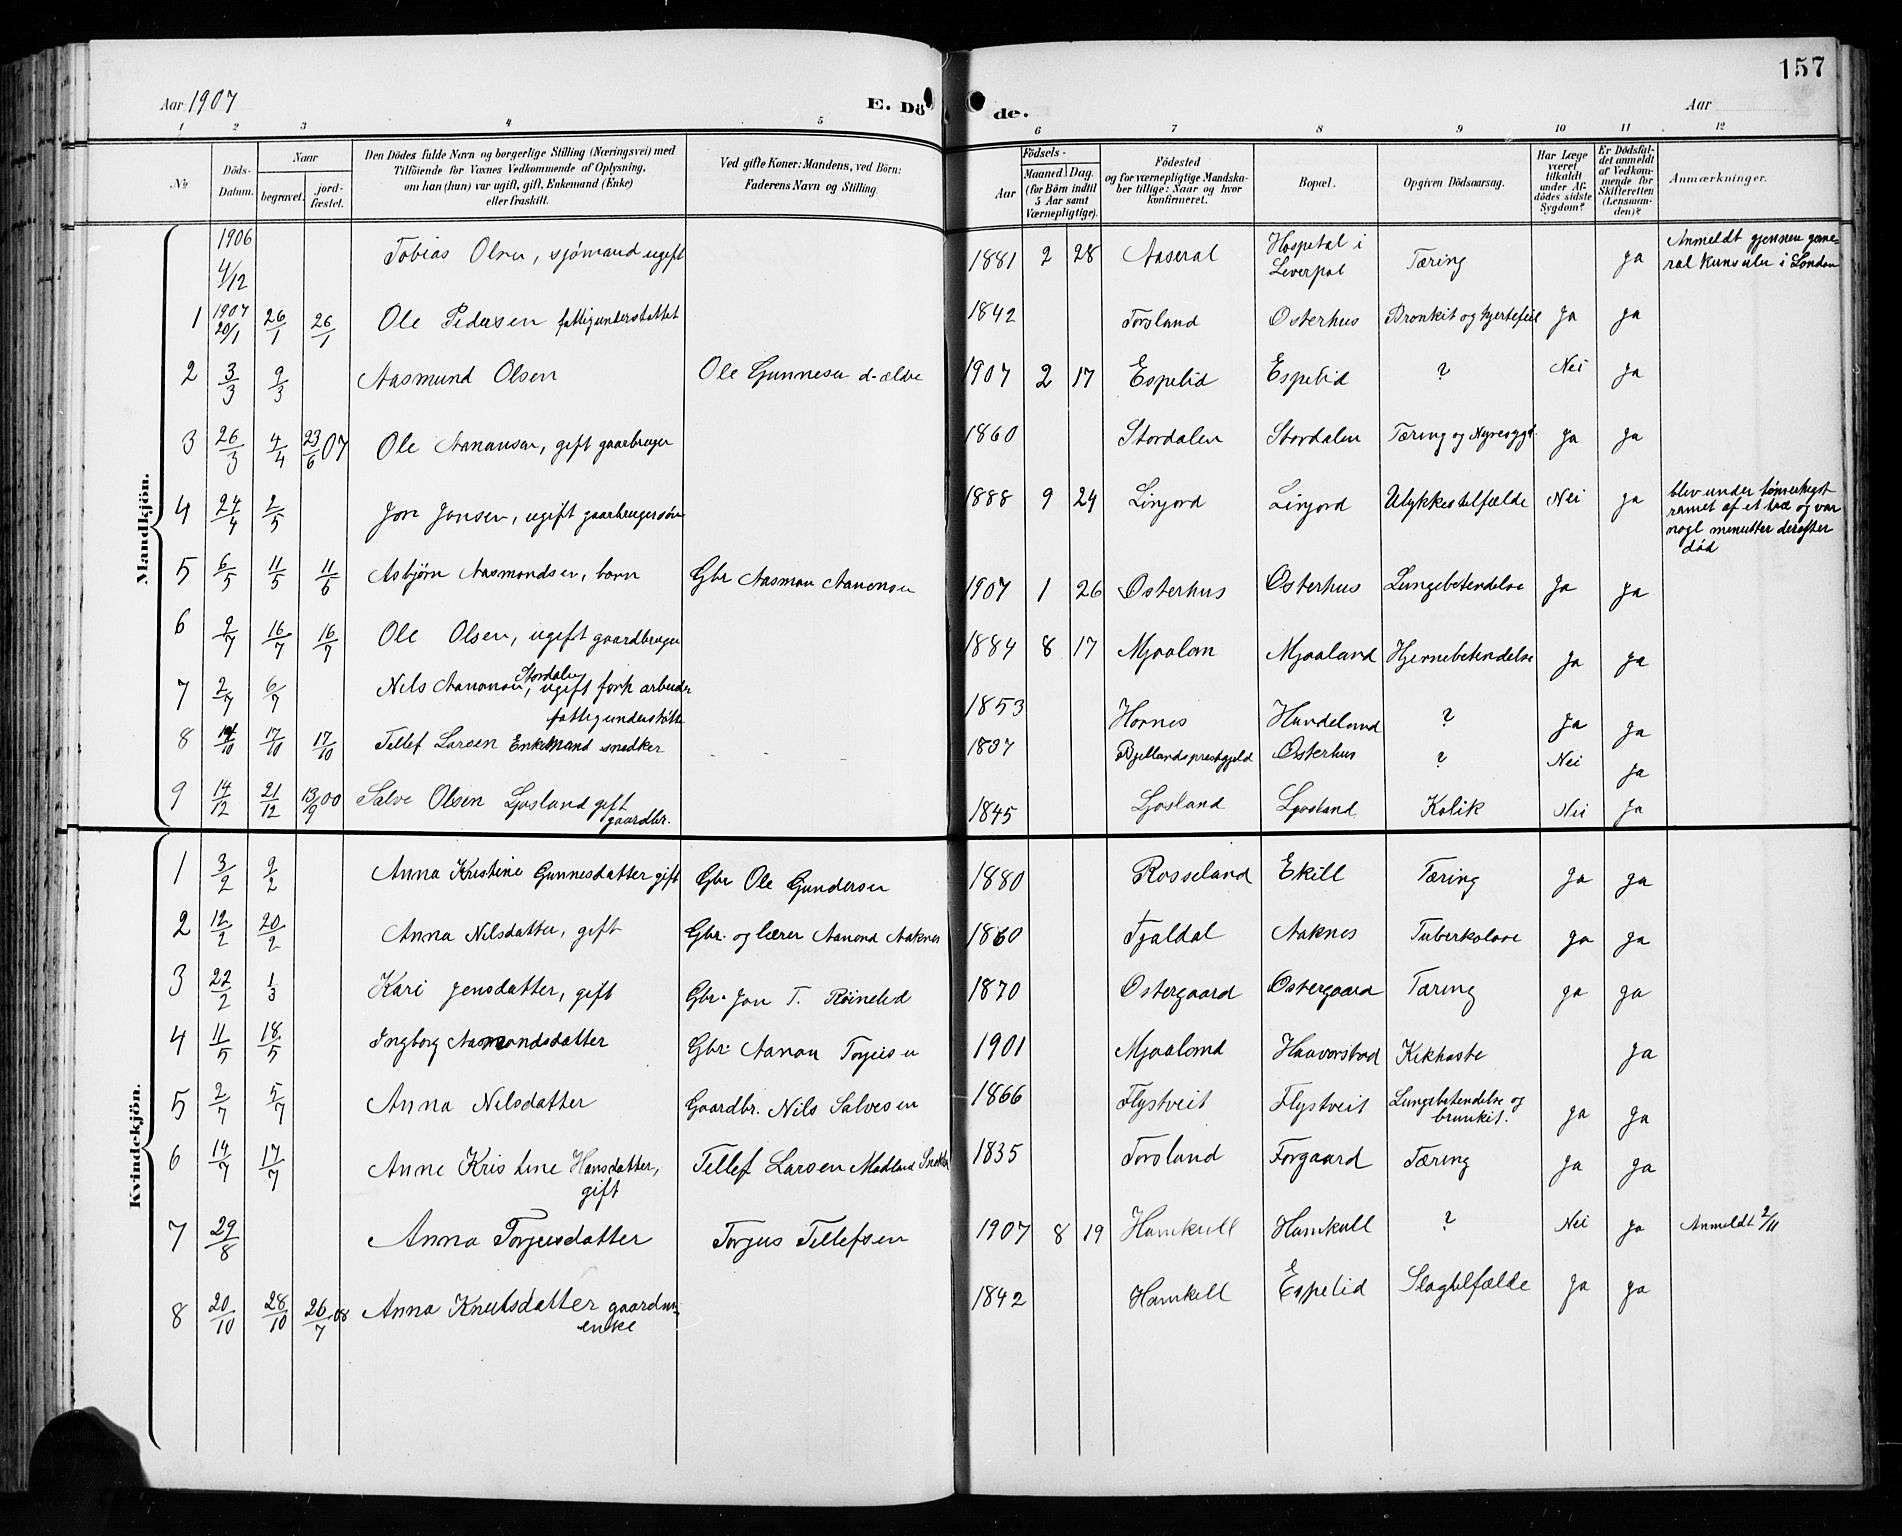 157
Aar 1907
E. Dö
de.
Aar
1 2 3 4 5 6 7 8 9 10 11 12
No
Döds-Datum.
Naar
begravet.
jord-fæstet.
Den Dödes fulde Navn og borgerlige Stilling (Næringsvei) med
Tilföiende for Voxnes Vedkommende af Oplysning,
om han (hun) var ugift, gift, Enkemand (Enke)
eller fraskilt.
Ved gifte Koner: Mandens, ved Börn:
Faderens Navn og Stilling.
Födsels-
Aar
Maaned. Dag.
(for Börn indtil
5 Aar samt
Værnepligtige).
Födested
og for værnepligtige Mandska-
ber tillige: Naar og hvor
konfirmeret.
Bopæl.
Opgiven Dödsaarsag.
Har Læge
været
tilkaldt
under Af-
dödes sidste
Sygdom?
Er Dödsfal-
det anmeldt
af Vedkom-
mende for
Skifteretten
(Lensman-
den)?
Anmærkninger.
Mandkjön.
1906 4/12 Tobias Olsen, sjömand ugift 1881 2 28 Aaseral Hospetal i Leverpol Tæring ja Anmeldt gjennem gene-
ral kunsulen i London
1 1907 20/1 26/1 26/1 Ole Pedersen fattigunderstøttet 1842 Torsland Osterhus Bronkit og hjertefeil ja ja
2 3/3 9/3 Aasmund Olsen Ole Gunnesen d. ældre 1907 2 17 Espelid Espelid ? Nei ja
3 26/3 4/4 23/6 07 Ole Aanansen, gift gaarbruger 1860 Stordalen Stordalen Tæring og Nyresygd. ja ja
4 24/4 2/5 Jon Jonsen, ugift gaarbrugersøn 1888 9 24 Linjord Linjord Ulykkestilfælde Nei ja blev under tømerhugst
ramet af et træ og var
nogl minutter derefter
død
5 6/5 11/5 11/5 Asbjørn Aasmondsen, barn Gbr Aasmon Aanonsen 1907 1 26 Osterhus Osterhus Lungebetendelse ja ja
6 9/7 16/7 16/7 Ole Olsen, ugift gaardbruger 1884 8 17 Mjaalan Mjaaland Hjernebetendelse ja ja
7 2/7 6/7 Nils Aanonsen, Stordalen ugift forh arbeider
fattigunderstøtte 1853 Hornes Hundeland ? ja ja
8 14/10 17/10 17/10 Tellef Larsen Enkemand snedker 1837 Bjellandsprestgjeld Osterhus ? Nei ja
9 14/12 21/12 13/9 00 Salve Olsen Ljosland gift
gaardbr. 1845 Ljosland Ljosland Kolik Nei ja
Kvindekjön.
1 3/2 9/2 Anna Kristine Gunnesdatter gift Gbr Ole Gundersen 1880 Rosseland Ekill Tæring ja ja
2 12/2 20/2 Anna Nilsdatter, gift Gbr. og lærer Aanond Aaknes 1860 Fjaldal Aaknes Tuberkolose ja ja
3 22/2 1/3 Kari Jensdatter, gift Gbr. Jon T. Röinelid 1870 Ostergaard Ostergaard Tæring ja ja
4 11/5 18/5 Ingborg Aasmondsdatter Gbr. Aanon Torjusen 1901 Mjaalomd Haavorstad Kikhoste ja
5 2/7 5/7 Anna Nilsdatter Gaardbr. Nils Salvesen 1866 Flystveit Flystveit Lungebetendelse og
brunkit. ja ja
6 14/7 17/7 Anne Kristine Hansdatter,
gift Tellef Larsen Modland Snekker 1835 Torsland Forgaard Tæring ja ja
7 29/8 Anna Torjusdatter Torjus Tellefsen 1907 8 19 Hamkull Hamkull ? Nei ja Anmeldt 2/11
8 20/10 28/10 26/7 08 Anna Knutsdatter gaardm-
enke 1842 Hamkell Espelid Slagtilfælde ja ja